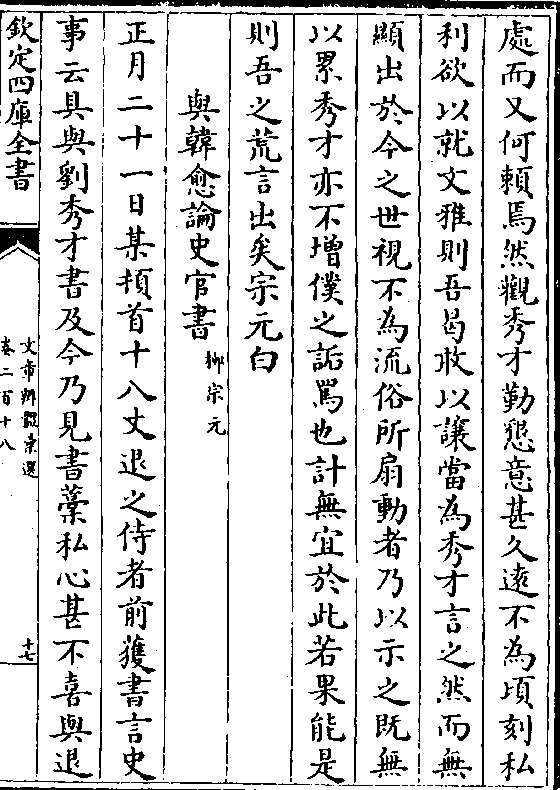 處而又何賴焉然觀秀才勤懇意甚久逺不為頃刻私
利欲以就文雅則吾曷敢以讓當為秀才言之然而無
顯出於今之世視不為流俗所扇動者乃以示之既無
以累秀才亦不增僕之詬罵也計無宜於此若果能是
則吾之荒言出矣宗元白
與韓愈論史官書 柳宗元
正月二十一日某頓首十八丈退之侍者前獲書言史
事云具與劉秀才書及今乃見書藁私心甚不喜與退
欽定四庫全書
文章辨體彚選
卷二百十八
十七